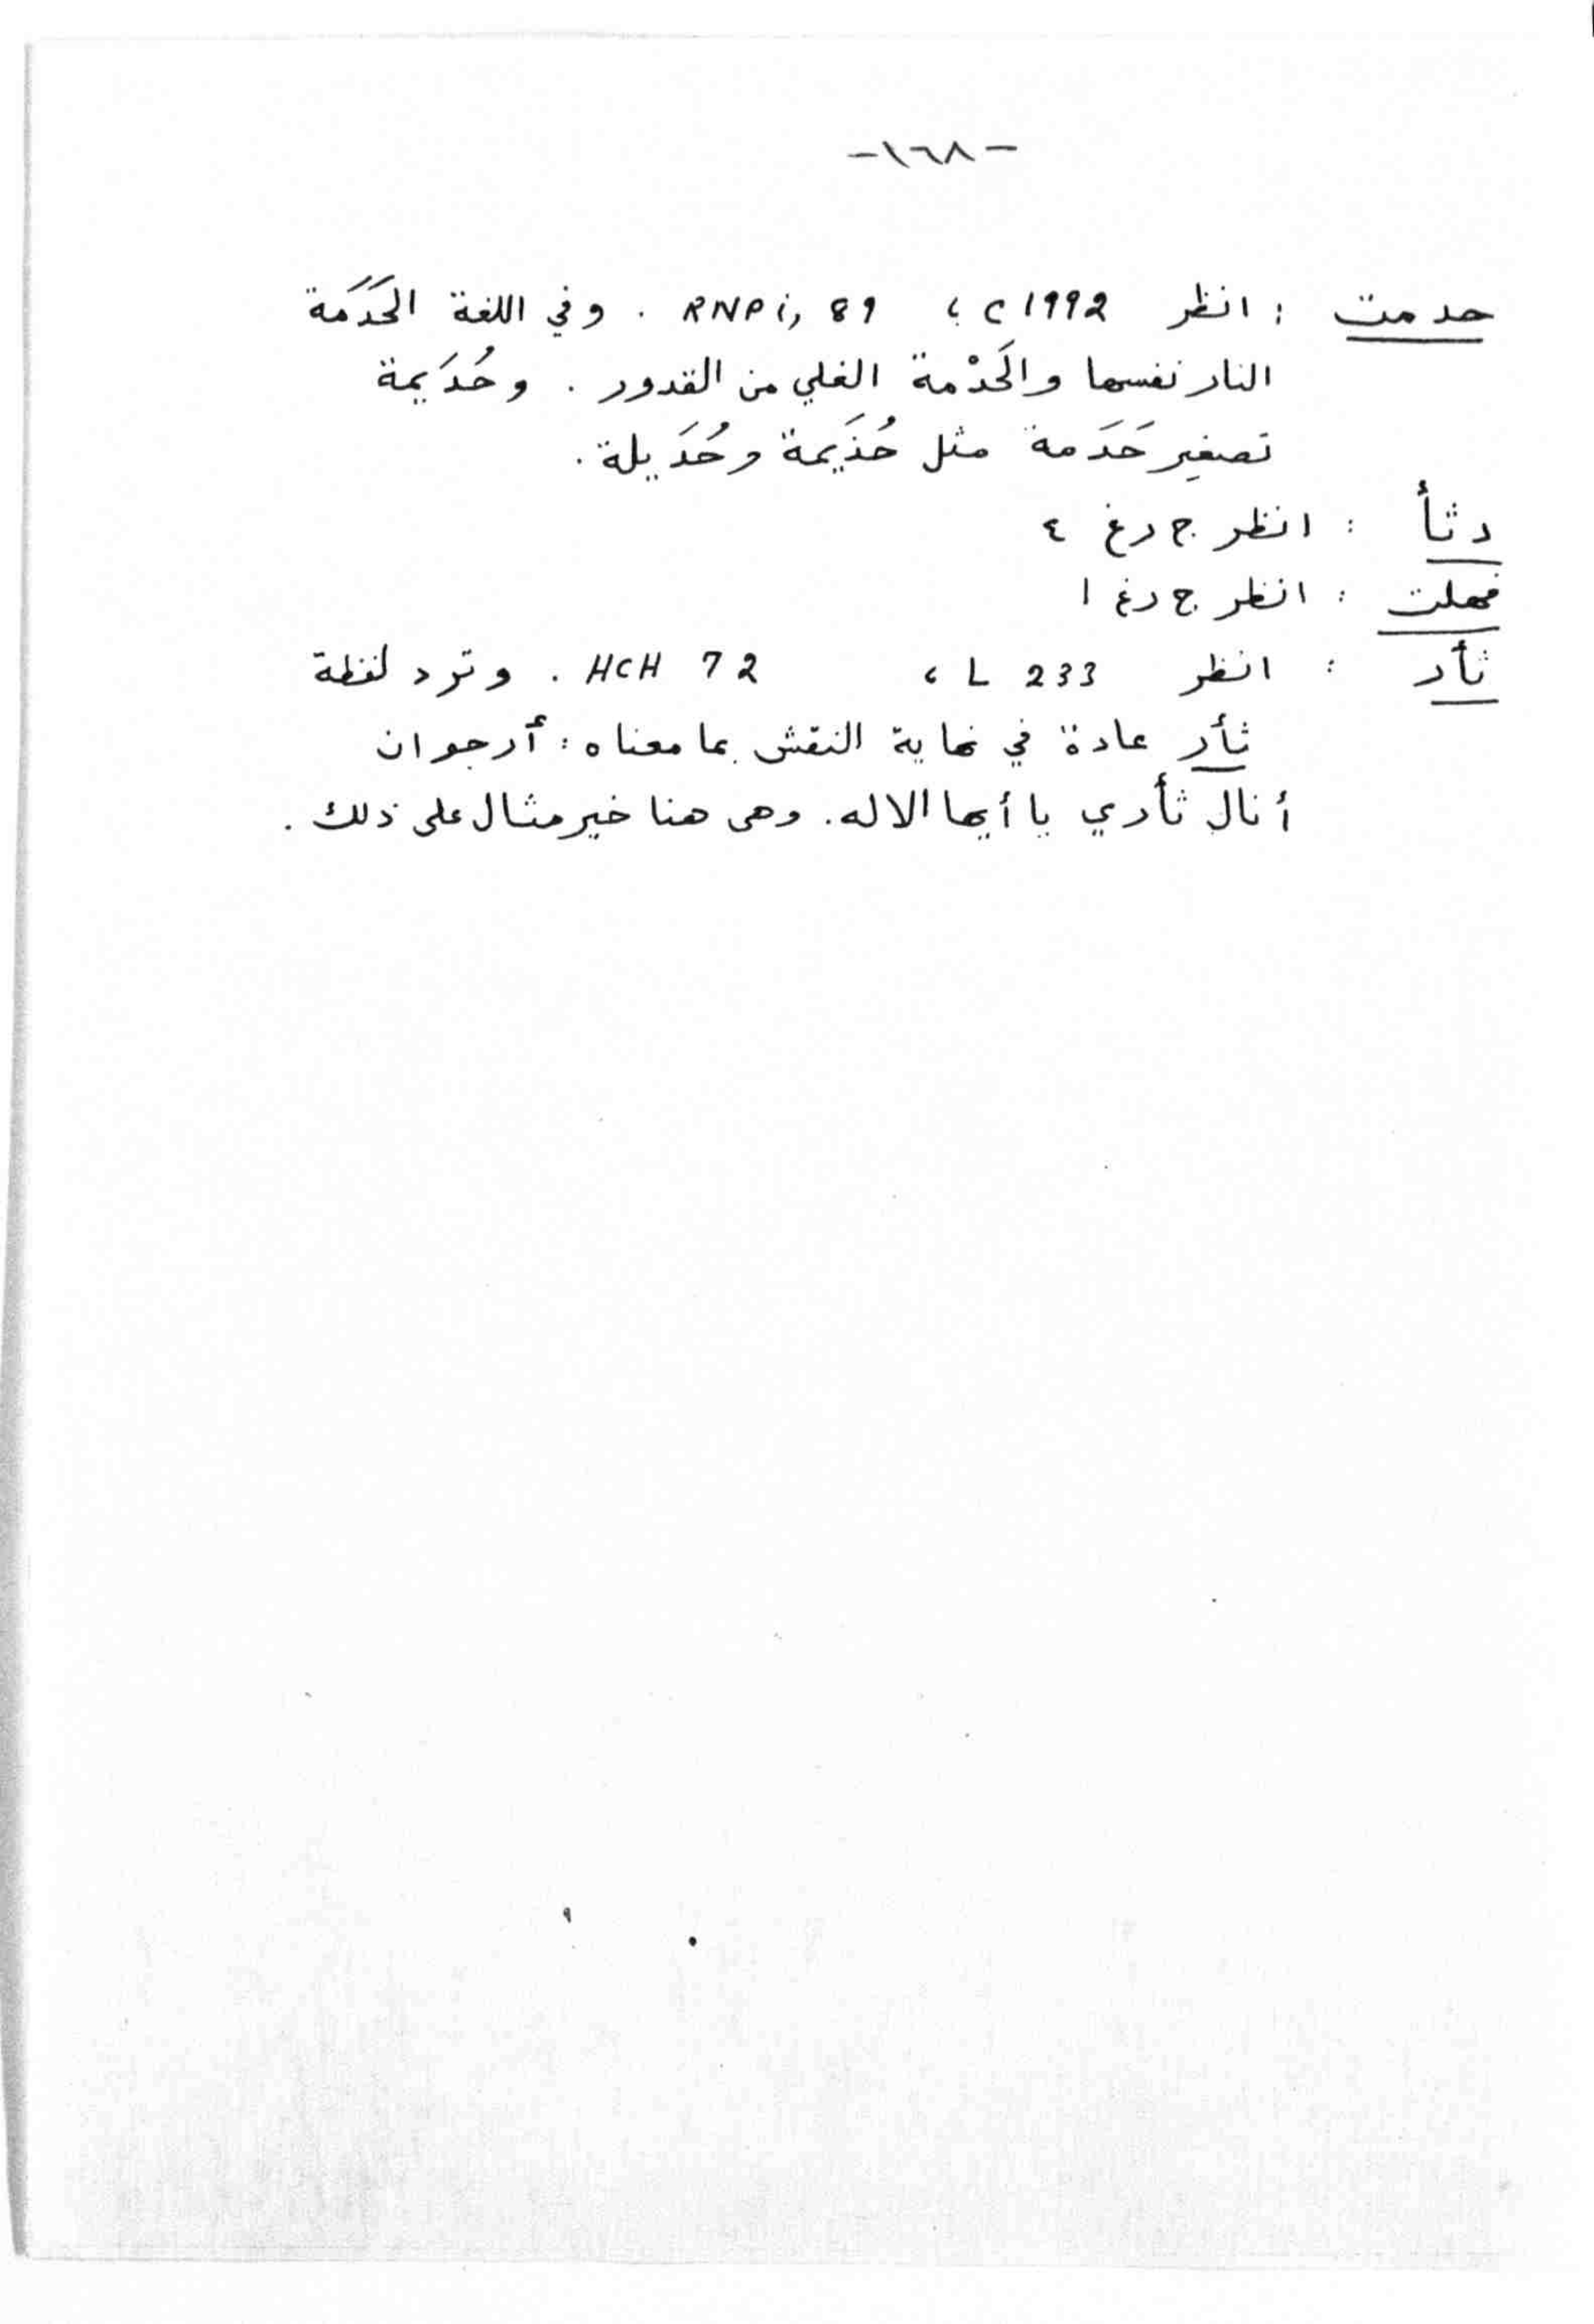 -١٦٨-
حدمت : انظر C 1992 ، RNP i, 89 . وفي اللغة الحَدَمَة
النار نفسها والحَدْمة الغلي من القدور . وحُدَيمة
تصغير حَدَمة مثل حُذَيمة وحُدَيلة .
دثأ : انظر ج رغ ٤
فهلت : انظر ج رغ ١
ثأر : انظر L 233 ، HCH 72 . وترد لفظة
ثأر عادة في نهاية النقش بما معناه : أرجو ان
أنال ثأري يا أيها الاله . وهي هنا خير مثال على ذلك .